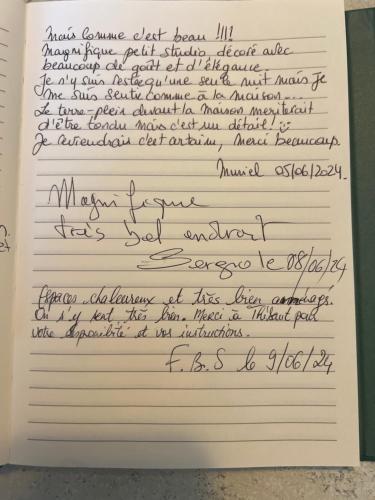 Mais comme c'est beau !!!!
Magnifique petit studio décoré avec
beaucoup de goût et d'élégance.
Je n'y suis restée qu'une seule nuit mais je
me suis sentie comme à la maison...
Le terre-plein devant la maison meriterait
d'être tondu mais c'est un détail!
Je reviendrais c'est certain, merci beaucoup.
Muriel 05/06/2024.
Magnifique
très bel endroit
Sergio le 08/06/24
Espaces chaleureux et très bien aménagés.
On s'y sent très bien. Merci à Thibaut pour
votre disponibilité et vos instructions.
F.B.S le 9/06/24